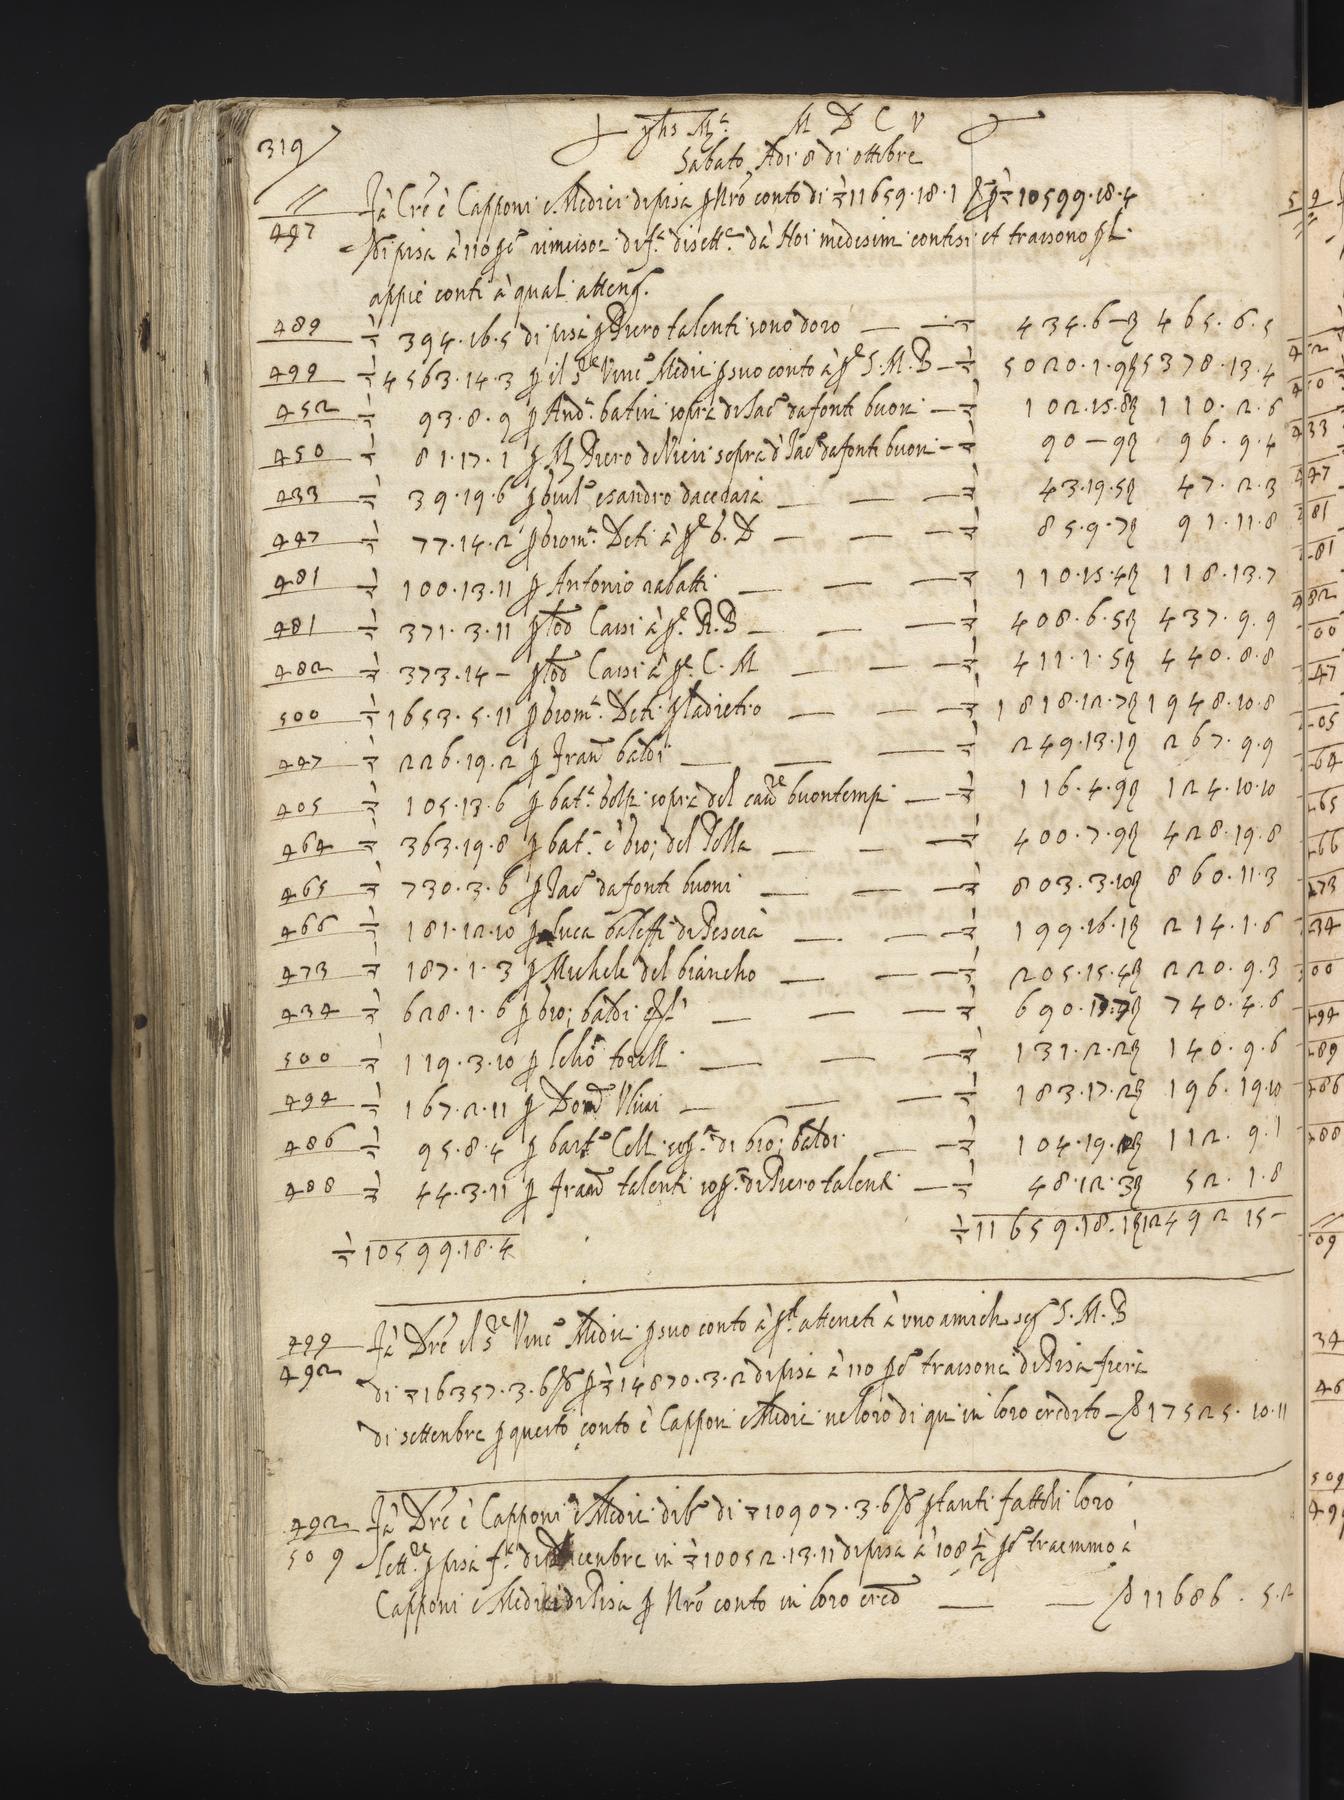 319
yhs Mª M D C V
Sabato, Adi 8 di ottibre
Fa Cre e Capponi e Medici di pisa p Nro conto di ▽ 11659.18.1 ▽ 10599.18.4
497 di pisa à 110 pco rimeisoz di fª di settᵉ da Noi medesim: contisi et traesono pl
appie conti à qual: atteng.
489 ▽ 394.16.5 di pisa p Piero talenti sono doro — — ▽ 434.6 — 465.6.5
499 ▽ 4563.14.3 p il Sre Vinc° Medic: p suo conto à pl S.M.B — ▽ 5020.1.9 5378.13.4
452 ▽ 93.8.9 p Andª batin sopra di Jac° da fonte buon: — ▽ 102.15.8 110.2.6
450 ▽ 81.17.1 p Mr Piero de Neri sopra d Jac° da fonti buon: — ▽ 90 — 9 96.9.4
433 ▽ 39.19.6 — — ▽ 43.19.5 47.2.3
447 ▽ 77.14.2 p biomª Deti à pl b.D — — — ▽ 85.9.7 91.11.8
481 ▽ 100.13.11 p Antonio rabatti — — — ▽ 110.15.4 118.13.7
481 ▽ 371.3.11 p lod° Cassi à pl R.B — — — ▽ 408.6.5 437.9.9
482 ▽ 373.14 — p lod° Cassi à pl C.M — — — ▽ 411.1.5 440.8.8
500 ▽ 1653.5.11 p biomª Deti p ladietro — — — ▽ 1818.12.7 1948.10.8
447 ▽ 226.19.2 p Fran° baldi — — — ▽ 249.13.1 267.9.9
405 ▽ 105.13.6 p batª sopra del cavre buontempi — ▽ 116.4.9 124.10.10
464 ▽ 363.19.8 p batª e bio: del Tella — — — ▽ 400.7.9 428.19.8
465 ▽ 730.3.6 p Jac° da fonti buoni — — — ▽ 803.3.10 860.11.3
466 ▽ 181.12.10 p luca baleffi di Pescia — — — ▽ 199.16.1 214.1.6
473 ▽ 187.1.3 p Michele del biancho — — — ▽ 205.15.4 220.9.3
434 ▽ 628.1.6 p bio: baldi — — — ▽ 690.17.7 740.4.6
500 ▽ 119.3.10 p torell: — — — ▽ 131.2.2 140.9.6
494 ▽ 167.2.11 p — — — ▽ 183.17.2 196.19.10
486 ▽ 95.8.4 p bart° Cell: sopª di bio: baldi — — ▽ 104.19.2 112.9.1
488 ▽ 44.3.11 p Fran° talenti sopª di Piero talenti — ▽ 48.12.3 52.1.8
▽ 10599.18.4 ▽ 11659.18.1 12492 15 —
499 Fa Dre el Sre Vinc° Medic: p suo conto à pl attenēti à uno amich: seg° S.M.B
492 di ▽ 16357.3.6 p ▽ 14870.3.2 di pisa à 110 pco traesono di Pisa fiera
di settenbre p questo conto è Cappon: e Medic: ne loro di qui in loro credito — 17525.10.11
492 Fa Dre è Capponi e Medic: di b° di ▽ 10907.3.6 p tanti fattoli loro
509 lettre p pisa fª di Dicenbre in ▽ 10052.13.11 di pisa à 108 1/2 pco traemmo à
Capponi e Medici di Pisa p Nro conto in loro cred° — — 11686.5.2